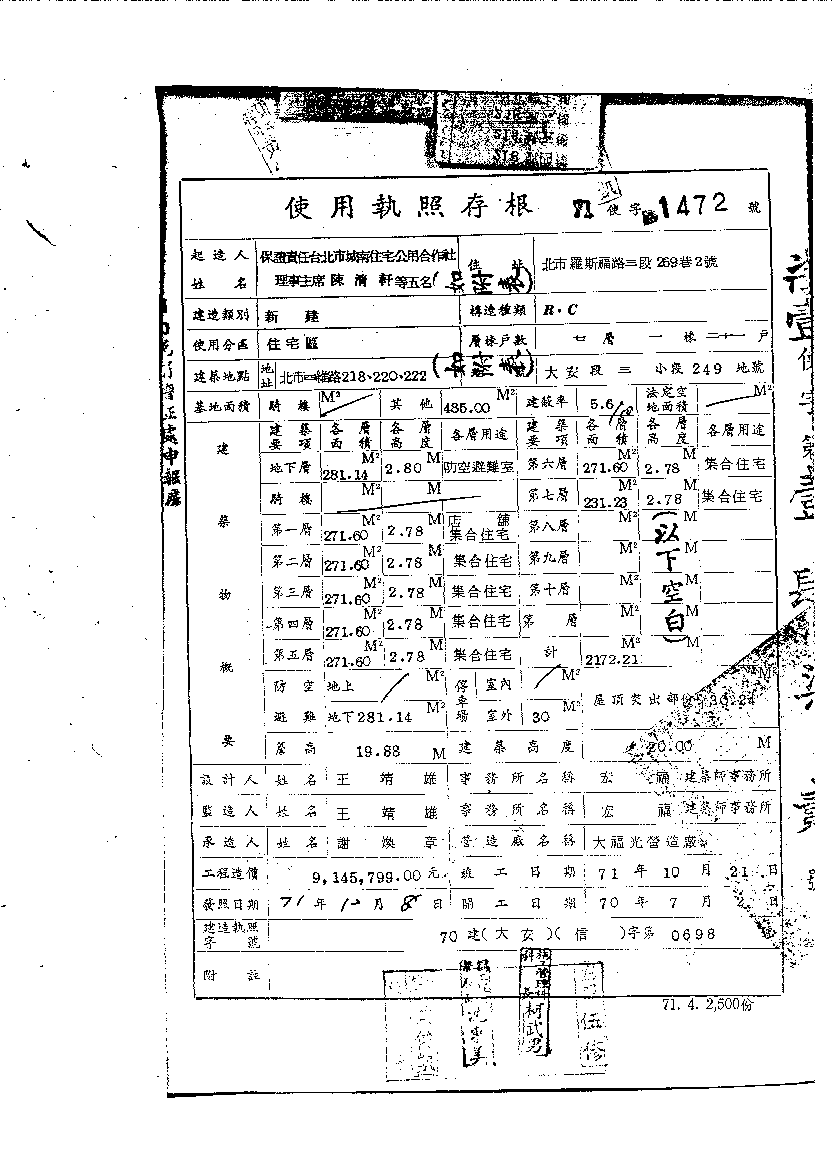 使用執照存根 71 使字 1472 號
起造人姓名 保證責任台北市城南住宅公用合作社理事主席 陳清軒 等五名(如附表) 住址 北市羅斯福路三段269巷2號
建造類別 新建 構造種類 R·C
使用分區 住宅區 層棟戶數 七層一棟二十一戶
建築地點 地址 北市四維路218、220、222 (如附表) 大安段三小段249地號
基地面積 騎樓 M² 其他 435.00 M² 建蔽率 5.6/10 法定空地面積 M²
建築物概要
建築要項 各層面積 各層高度 各層用途 建築要項 各層面積 各層高度 各層用途
地下層 281.14 M² 2.80 M 防空避難室 第六層 271.60 M² 2.78 M 集合住宅
騎樓 M² M 第七層 231.23 M² 2.78 M 集合住宅
第一層 271.60 M² 2.78 M 店舖集合住宅 第八層 M² M (以下空白)
第二層 271.60 M² 2.78 M 集合住宅 第九層 M² M
第三層 271.60 M² 2.78 M 集合住宅 第十層 M² M
第四層 271.60 M² 2.78 M 集合住宅 第 層 M² M
第五層 271.60 M² 2.78 M 集合住宅 計 2172.21 M² M
防空 地上 M² 停車場 室內 M² 屋頂突出部份 30.24 M²
避難 地下 281.14 M² 室外 30 M²
簷高 19.88 M 建築高度 20.00 M
設計人 姓名 王靖雄 事務所名稱 宏福 建築師事務所
監造人 姓名 王靖雄 事務所名稱 宏福 建築師事務所
承造人 姓名 謝煥章 營造廠名稱 大福光營造廠
工程造價 9,145,799.00 元 竣工日期 71 年 10 月 21 日
發照日期 71 年 12 月 8 日 開工日期 70 年 7 月 2 日
建造執照字號 70 建(大安)(信)字第 0698 號
附註
柯武男
伍修
71. 4. 2,500份